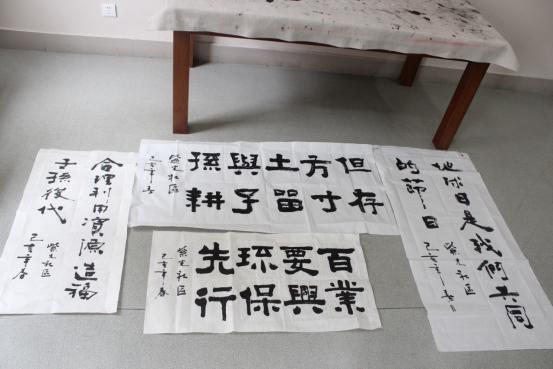 合理利用資源造福
子孫後代
社区
己亥年春
但存
方寸
土留
與子
孫耕
社区
己亥年春
百業
要興
環保
先行
社区
己亥年春
地球日是我們共同
的節日
社区
己亥年春